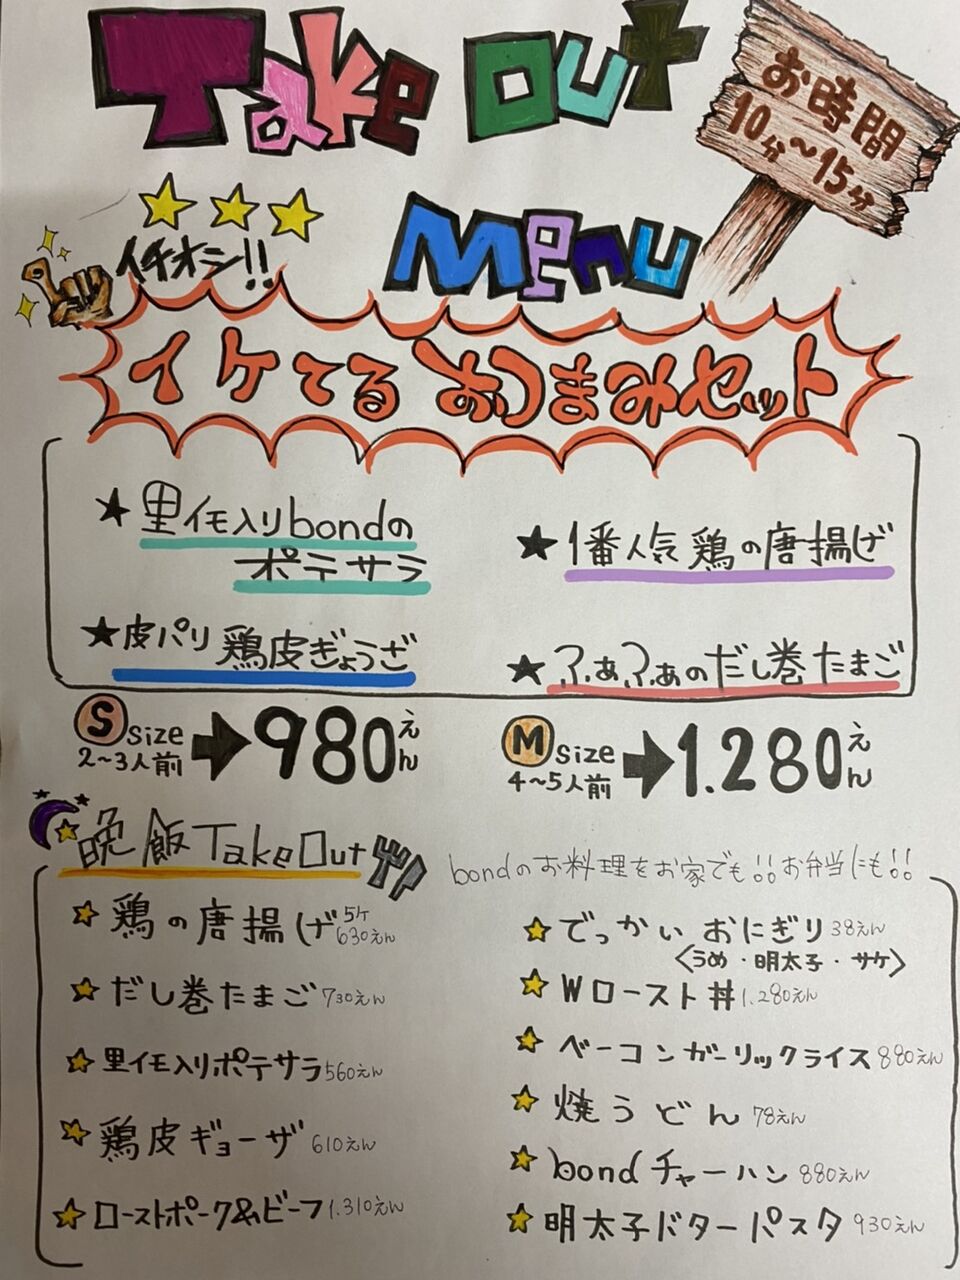 Take Out
お時間
10分〜15分
イチオシ!!
Menu
イケてるおつまみセット
★里イモ入りbondの
ポテサラ
★1番人気鶏の唐揚げ
★皮パリ鶏皮ぎょうざ
★ふぁふぁのだし巻たまご
S size
2〜3人前
➡980えん
M size
4〜5人前
➡1.280えん
晩飯TakeOut
bondのお料理をお家でも!!お弁当にも!!
鶏の唐揚げ5ケ
630えん
だし巻たまご730えん
里イモ入りポテサラ560えん
鶏皮ギョーザ610えん
ローストポーク&ビーフ1.310えん
でっかいおにぎり38えん
〈うめ・明太子・サケ〉
Wロースト丼1.280えん
ベーコンガーリックライス880えん
焼うどん78えん
bondチャーハン880えん
明太子バターパスタ930えん